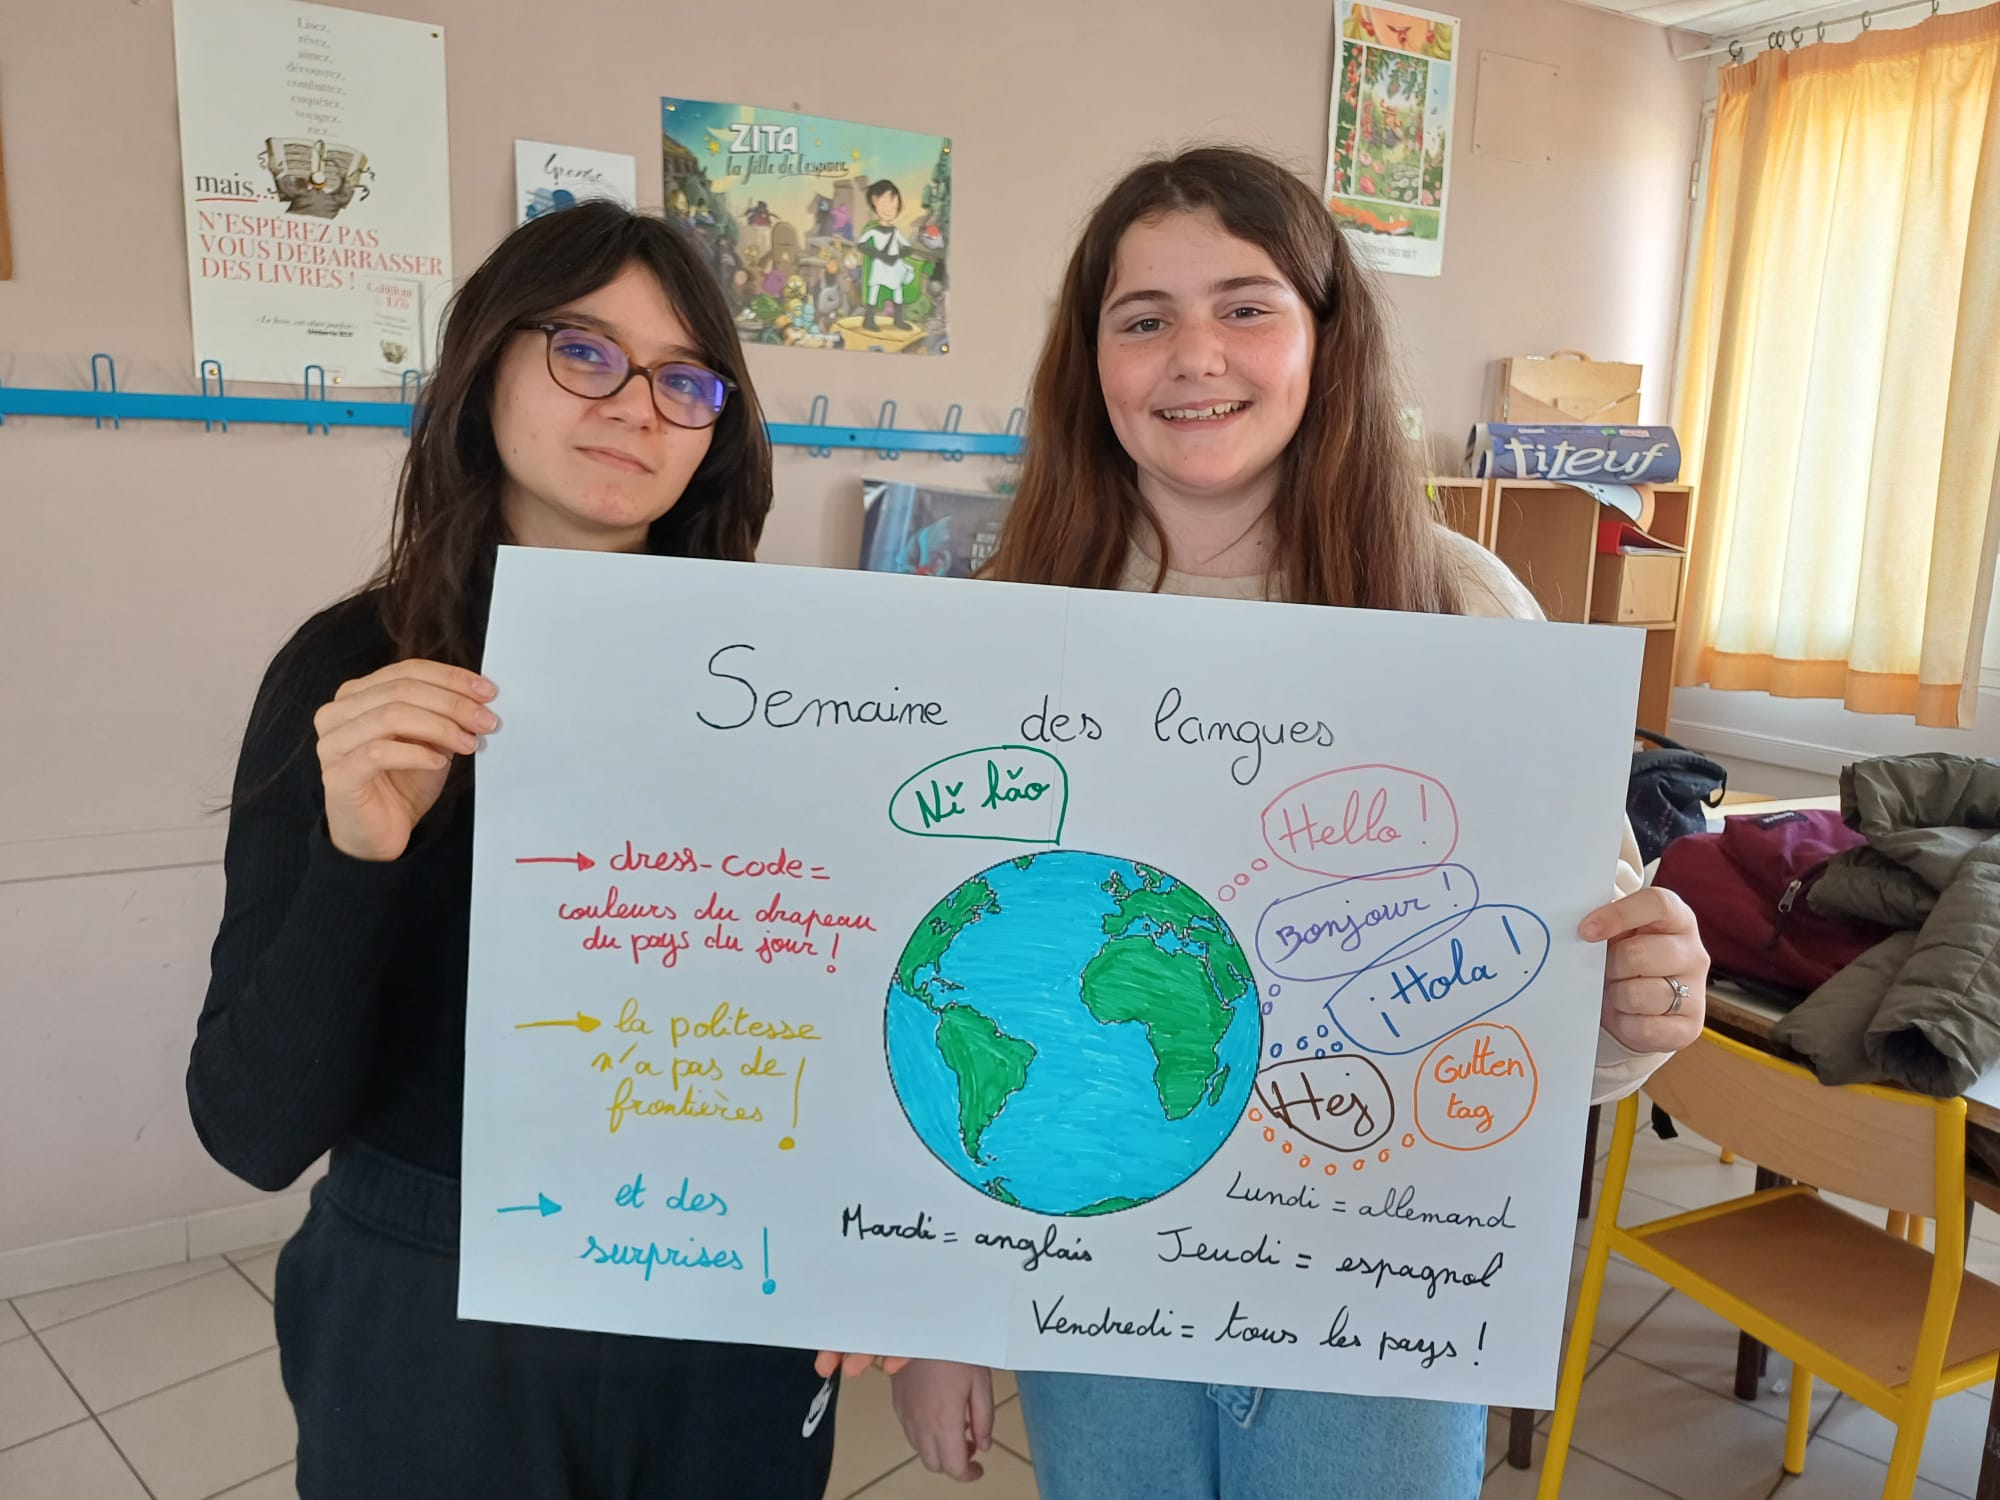 Lisez,
rêvez,
aimez,
découvrez,
combattez,
enquêtez,
voyagez,
riez...
mais...
N'ESPÉREZ PAS
VOUS DÉBARRASSER
DES LIVRES !
ZITA
la fille de l'espace
titeuf
Semaine des langues
Nǐ hǎo
Hello !
Bonjour !
¡Hola !
Hej
Gutten
tag
→ dress-code =
couleurs du drapeau
du pays du jour !
→ la politesse
n'a pas de
frontières !
→ et des
surprises !
Lundi = allemand
Mardi = anglais
Jeudi = espagnol
Vendredi = tous les pays !